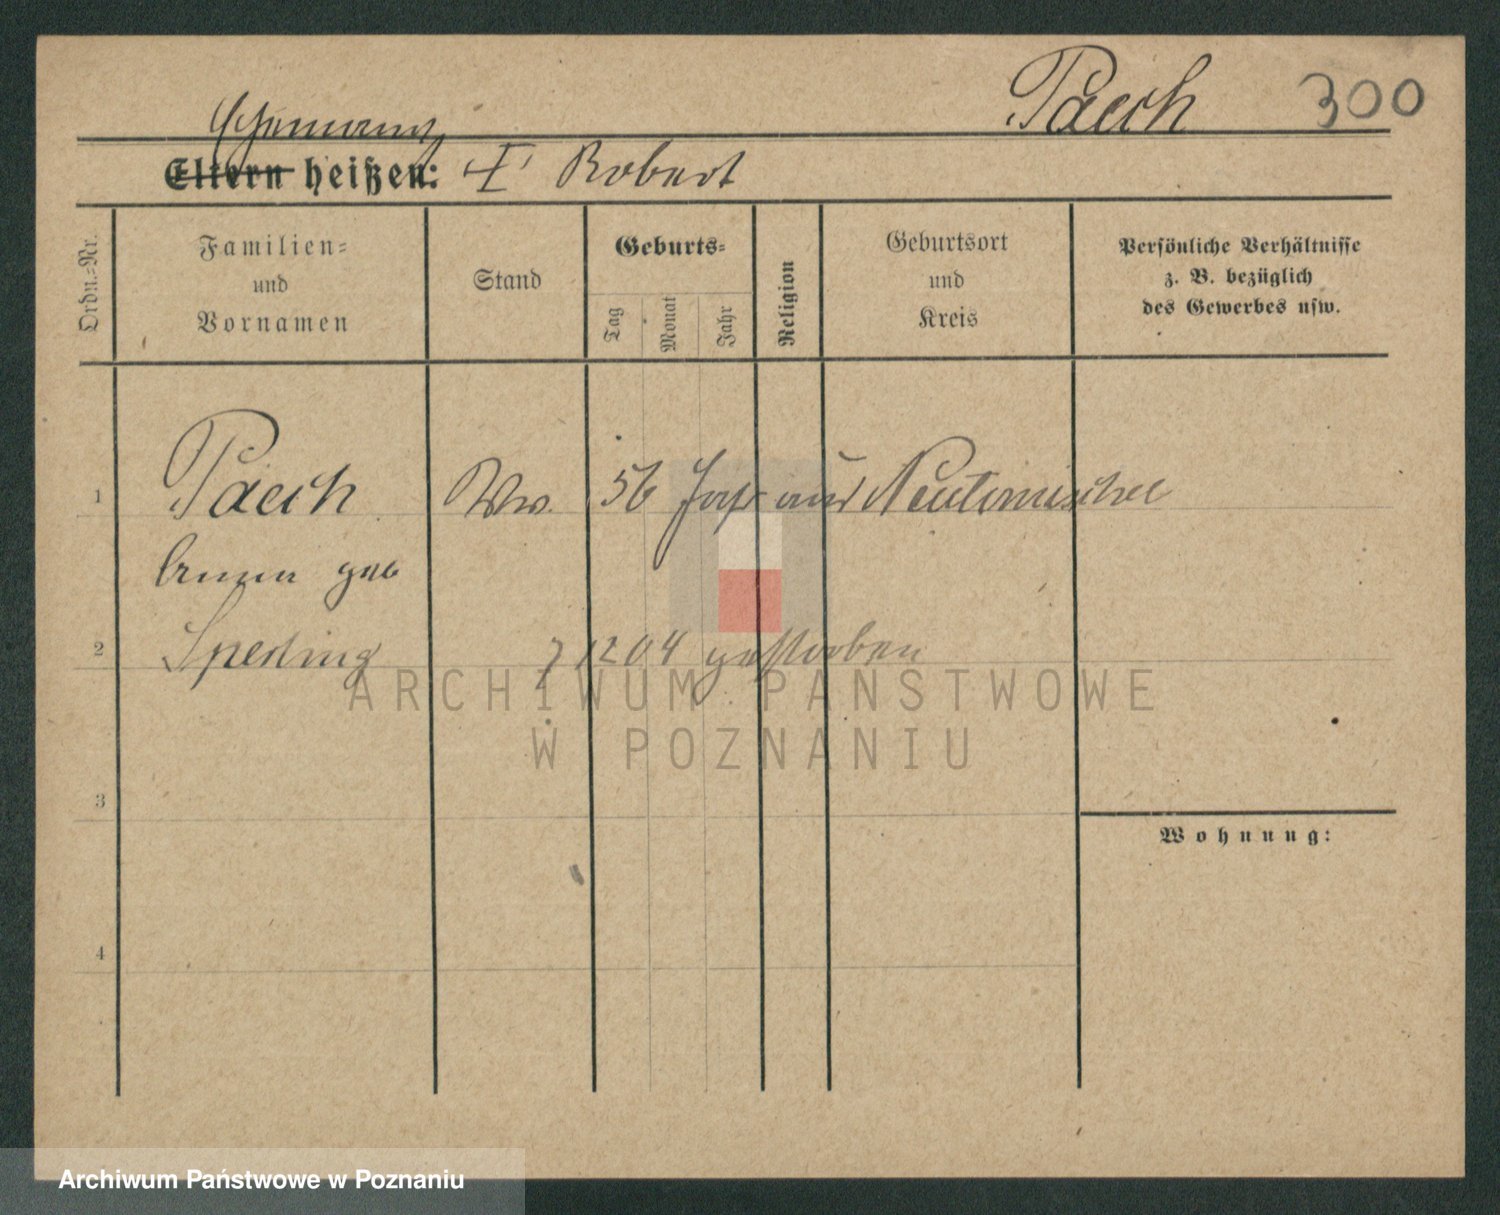 Paech 300
Ehemann
Eltern heißen: † Robert
Ordn.=Nr.
Familien=
und
Vornamen
Stand
Geburts=
Tag
Monat
Jahr
Religion
Geburtsort
und
Kreis
Persönliche Verhältnisse
z. B. bezüglich
des Gewerbes usw.
1 Paech Ww. 56 Jahr aus Neutomischel
Anna geb
2 Sperling 7 12 04 gestorben
ARCHIWUM PAŃSTWOWE
W POZNANIU
3
Wohnung:
4
Archiwum Państwowe w Poznaniu